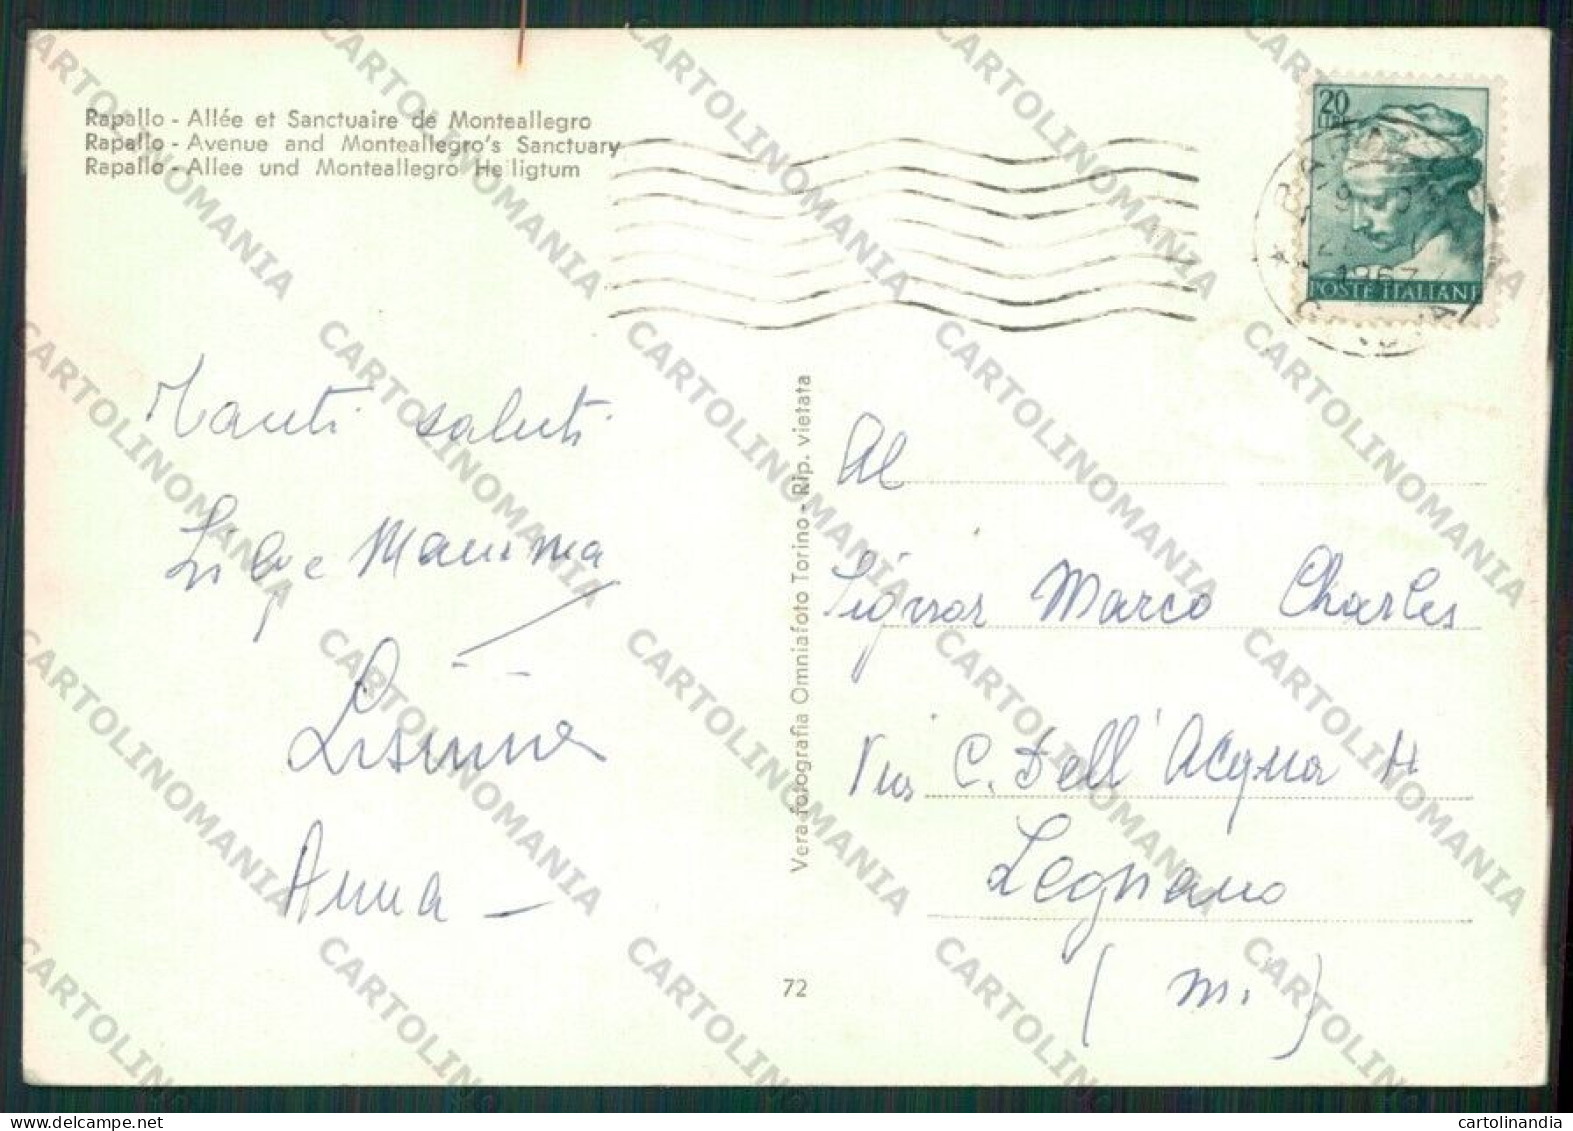 Rapallo - Allée et Sanctuaire de Monteallegro
Rapallo - Avenue and Monteallegro's Sanctuary
Rapallo - Allee und Monteallegro Heiligtum
20
LIRE
POSTE ITALIANE
1967
GENOVA
Tanti saluti
Mamma
Anna
Vera fotografia Omniafoto Torino - Rip. vietata
72
Al
Signor Marco Charles
Via C. Dell'Acqua
Legnano
(Mi.)
CARTOLINOMANIA
cartolinandia